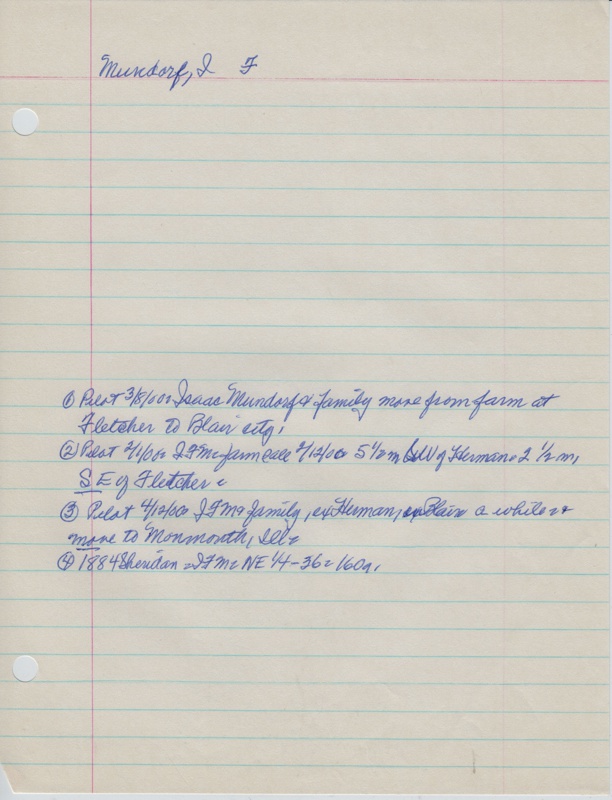 Mundorf, I F
① Pilot 3/8/00= Isaac Mundorf & family move from farm at
Fletcher to Blair city.
② Pilot 2/1/00= I F M= farm 2/12/00= 5 1/2 m SW of Herman= 2 1/2 m,
SE of Fletcher=
③ Pilot 4/12/00= I F M & family, ex Herman, ex Blair a while= &
move to Monmouth, Ill=
④ 1884 Sheridan = I F M= NE 1/4-36= 160a.